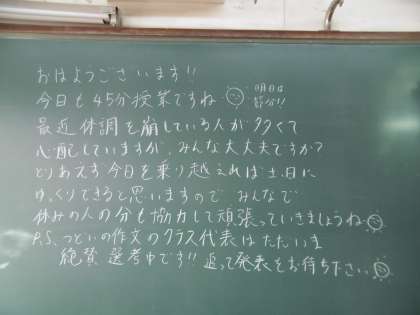 おはようございます!!
今日も45分授業ですね
明日は
節分!!
最近体調を崩している人が多くて
心配していますが、みんな大丈夫ですか?
とりあえず今日を乗り越えれば土日に
ゆっくりできると思いますので みんなで
休みの人の分も協力して頑張っていきましょうね
P.S. つどいの作文のクラス代表はただいま
絶賛 選考中です!! 追って発表をお待ち下さい